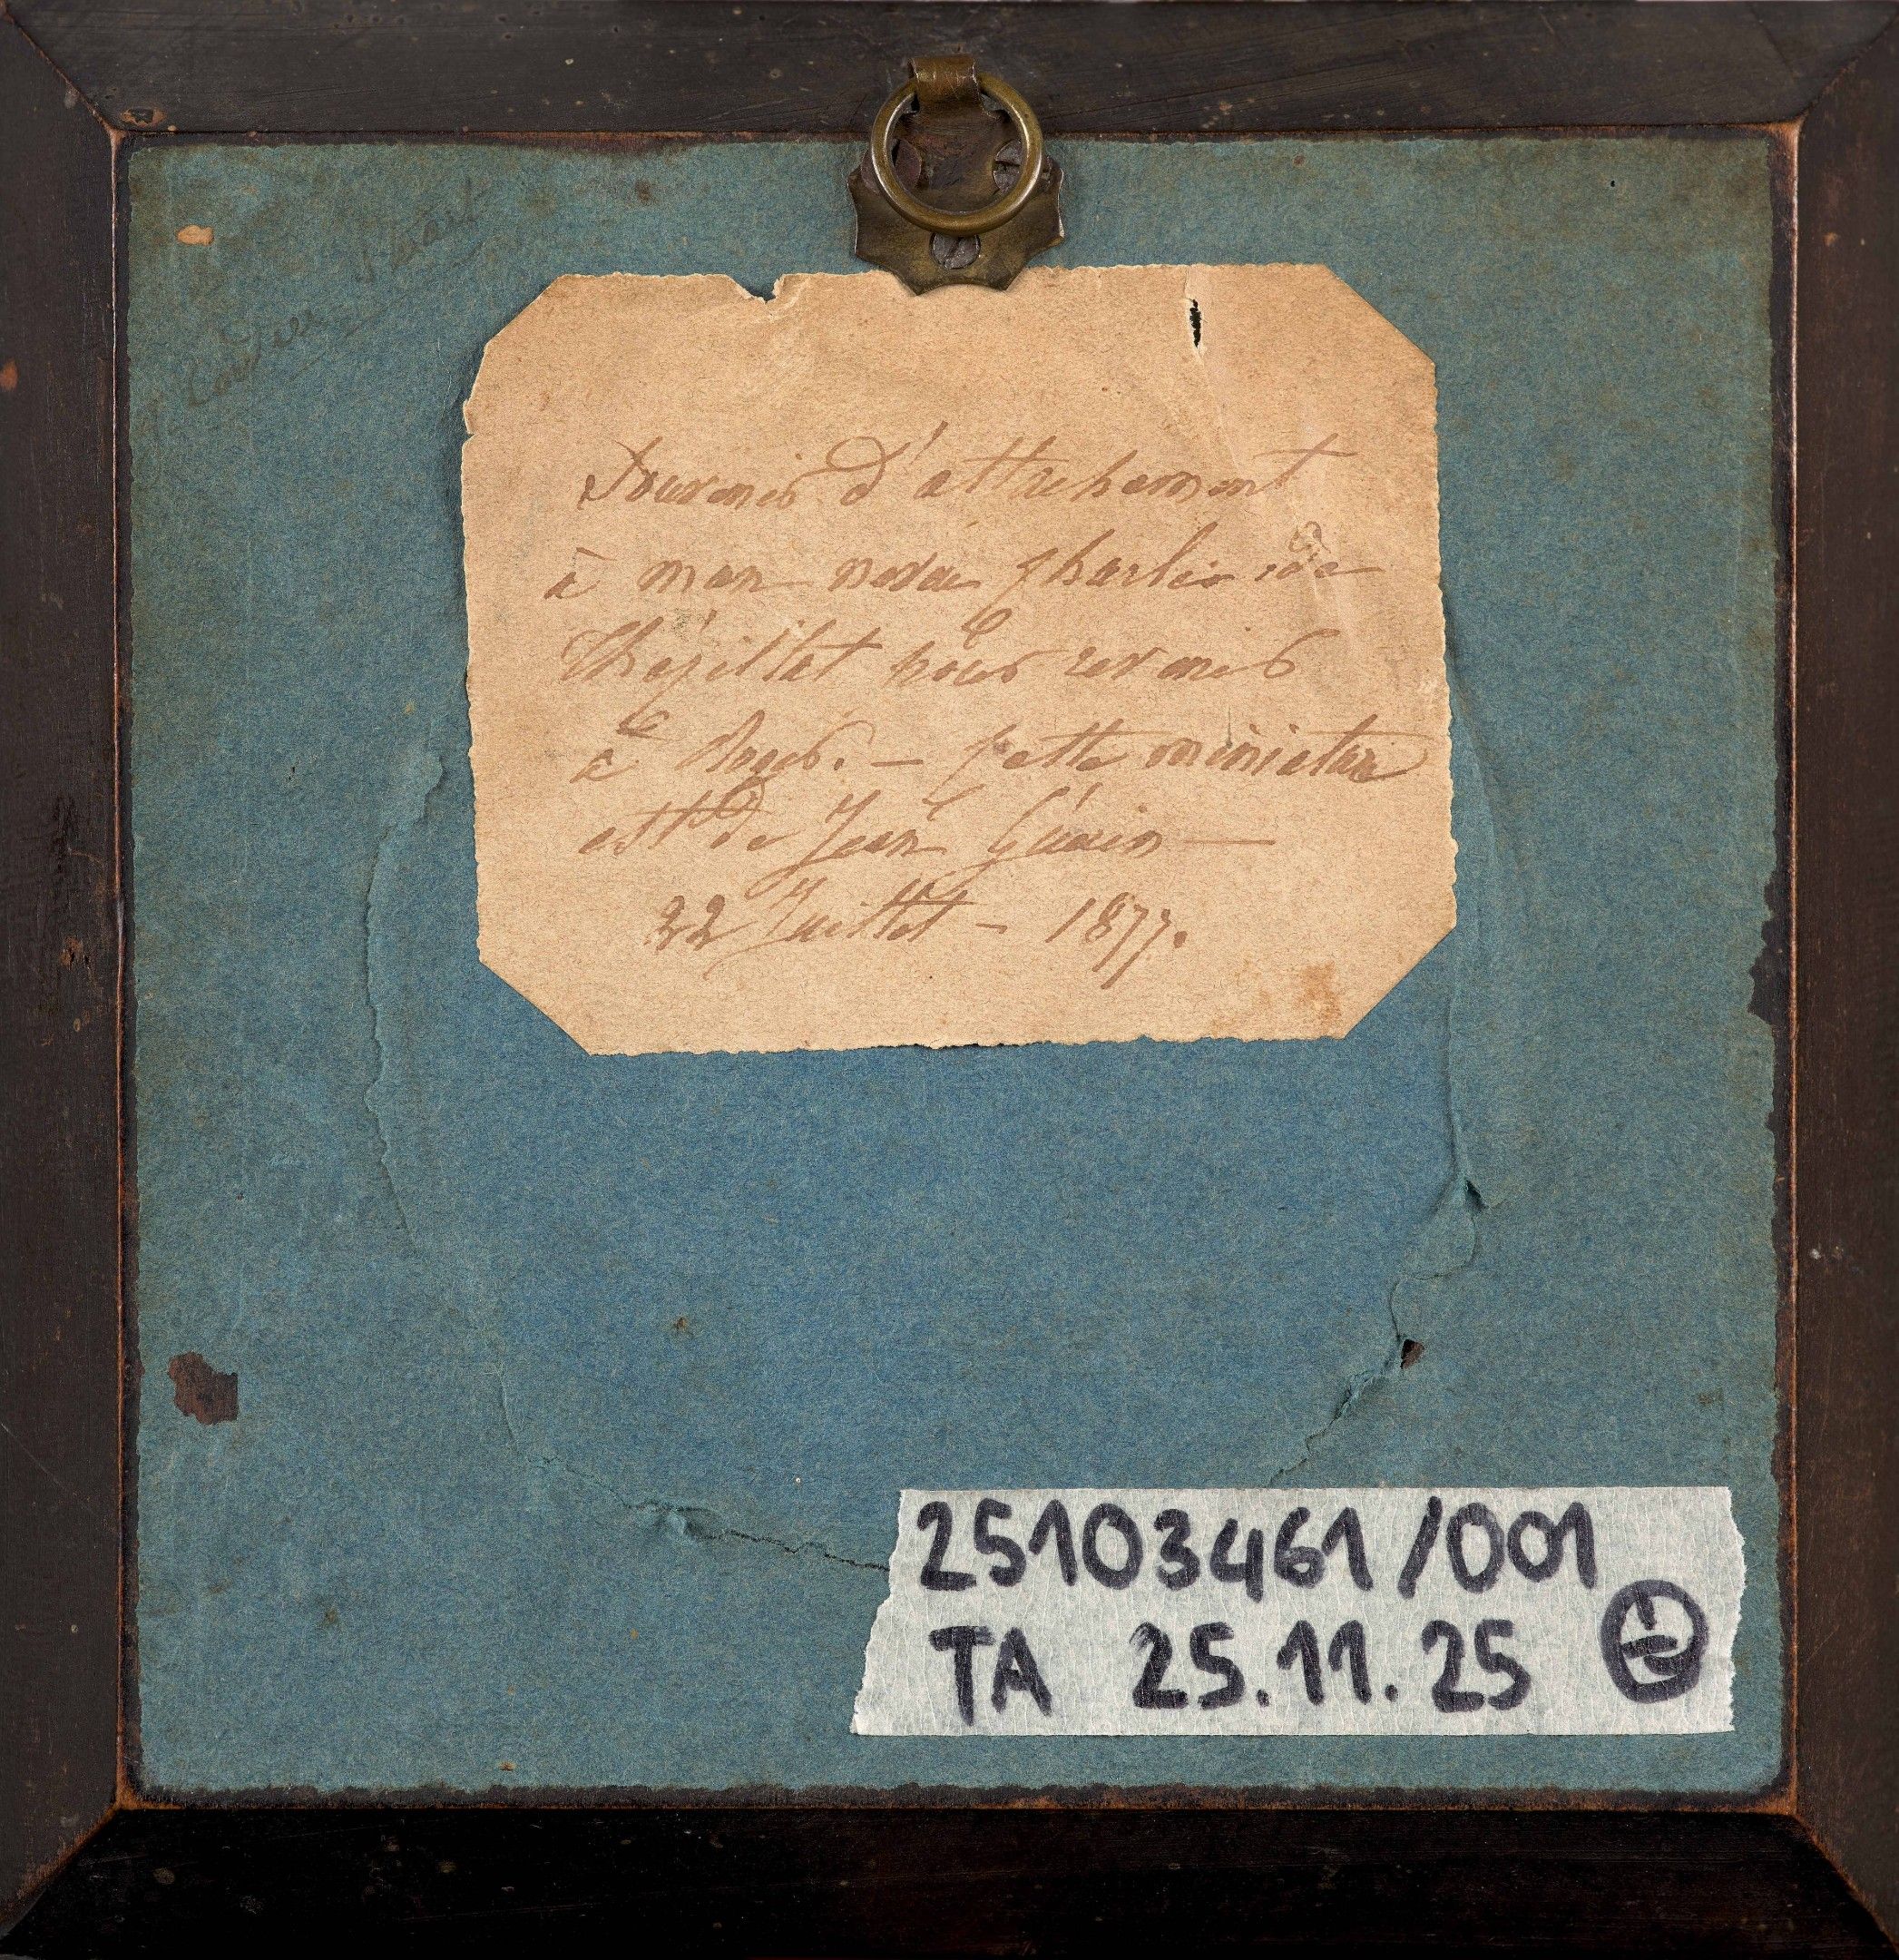 Souvenir d'attachement
à mon neveu Charles de
Thézillat pour revenir
à Roger. — Cette miniature
est de Jean Guérin —
22 Juillet - 1877.
25103461/001
TA 25.11.25